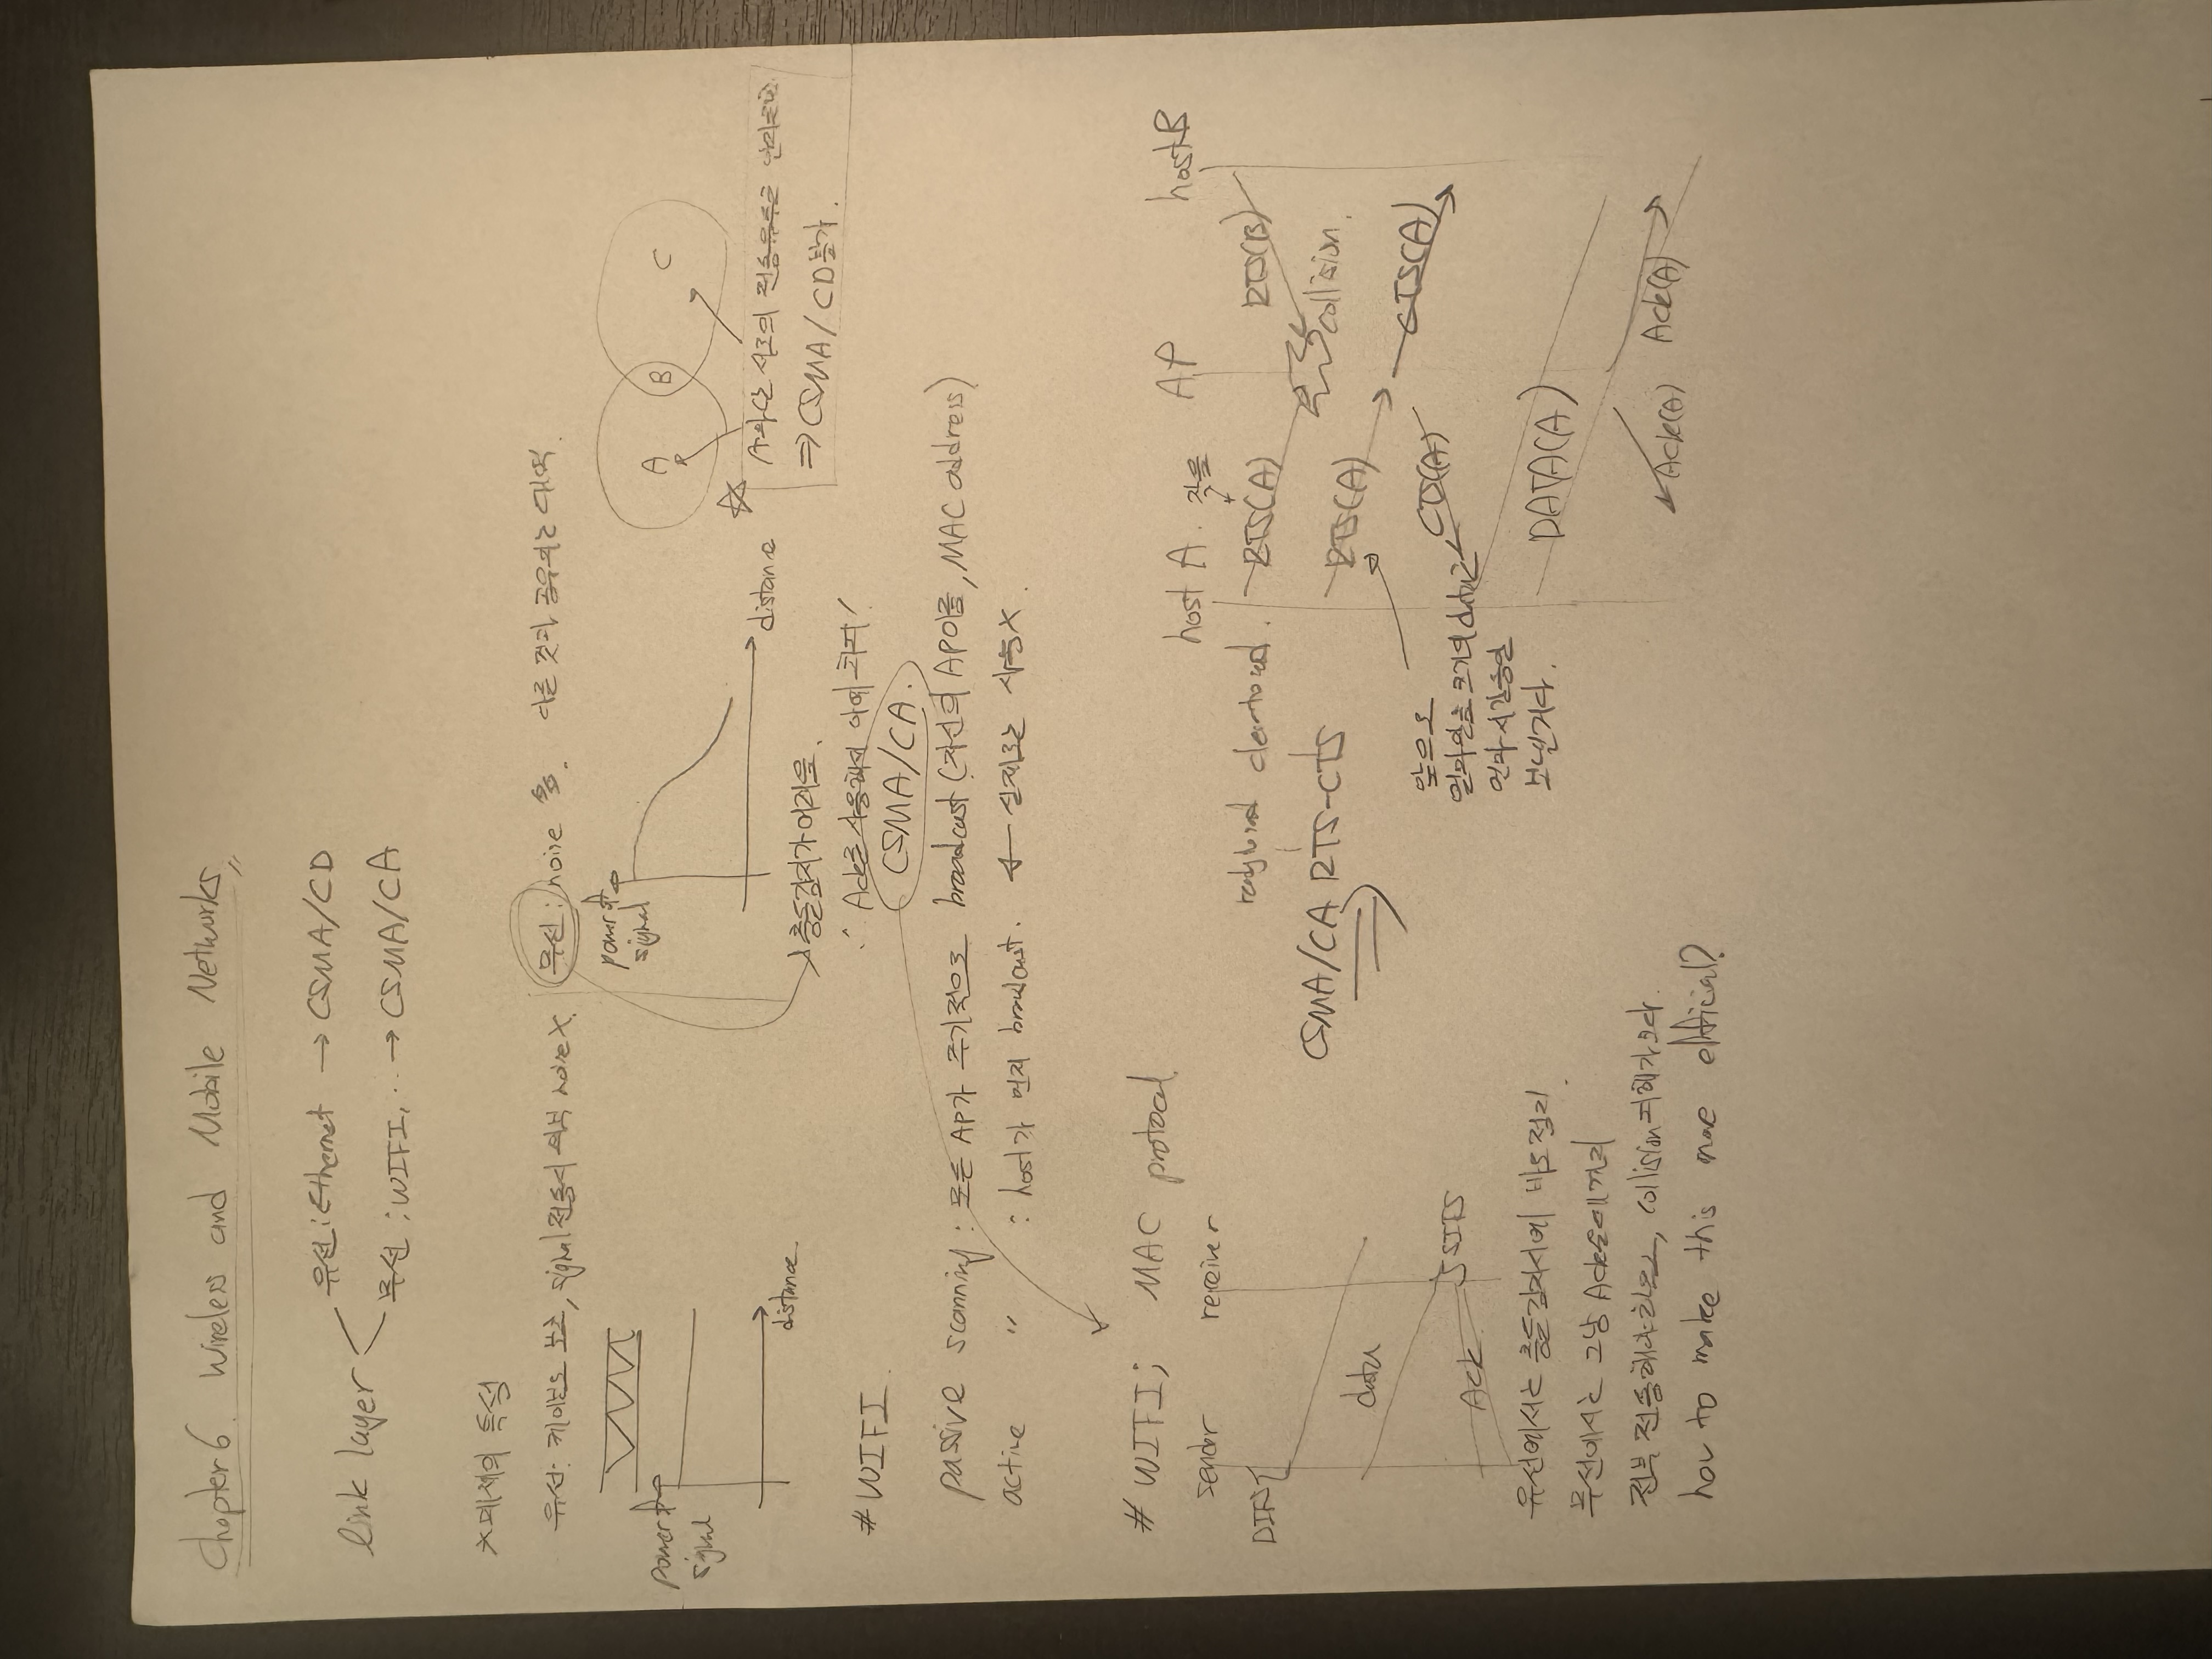 Chapter 6. Wireless and Mobile Networks
link layer
유선 : Ethernet → CSMA/CD
무선 : WIFI, ·· → CSMA/CA
*매체의 특성
유선: 케이블로 보호, signal 전송시 외부 noise X.
무선 : noise 多. 다른 것과 공유되는 대역.
power of signal
distance
power of signal
distance
A B C
☆ A와 C는 서로의 전송유무를
⇒ CSMA/CD 불가.
충돌감지가 어려움.
∴ Ack를 사용해서 아예 회피!
CSMA/CA.
# WIFI.
passive scanning : 모든 AP가 주기적으로 broadcast (자신의 AP이름, MAC address)
active 〃 : host가 먼저 broadcast. ← 실제로는 사용X.
# WIFI; MAC protocol
sender receiver
DIFS
data
SIFS
Ack
유선에서는 충돌감지시에 바로 정리
무선에서는 그냥 Ack
전부 전송해야 하므로, collision 피해가 크다.
how to make this more
CSMA/CA RTS-CTS
host A. AP host B
작음
RTS(A) RTS(B)
collision.
RTS(A)
CTS(A) CTS(A)
앞으로
얼마만큼 크기의 data를
얼마 시간동안
보낼거다.
DATA(A)
Ack(A) Ack(A)